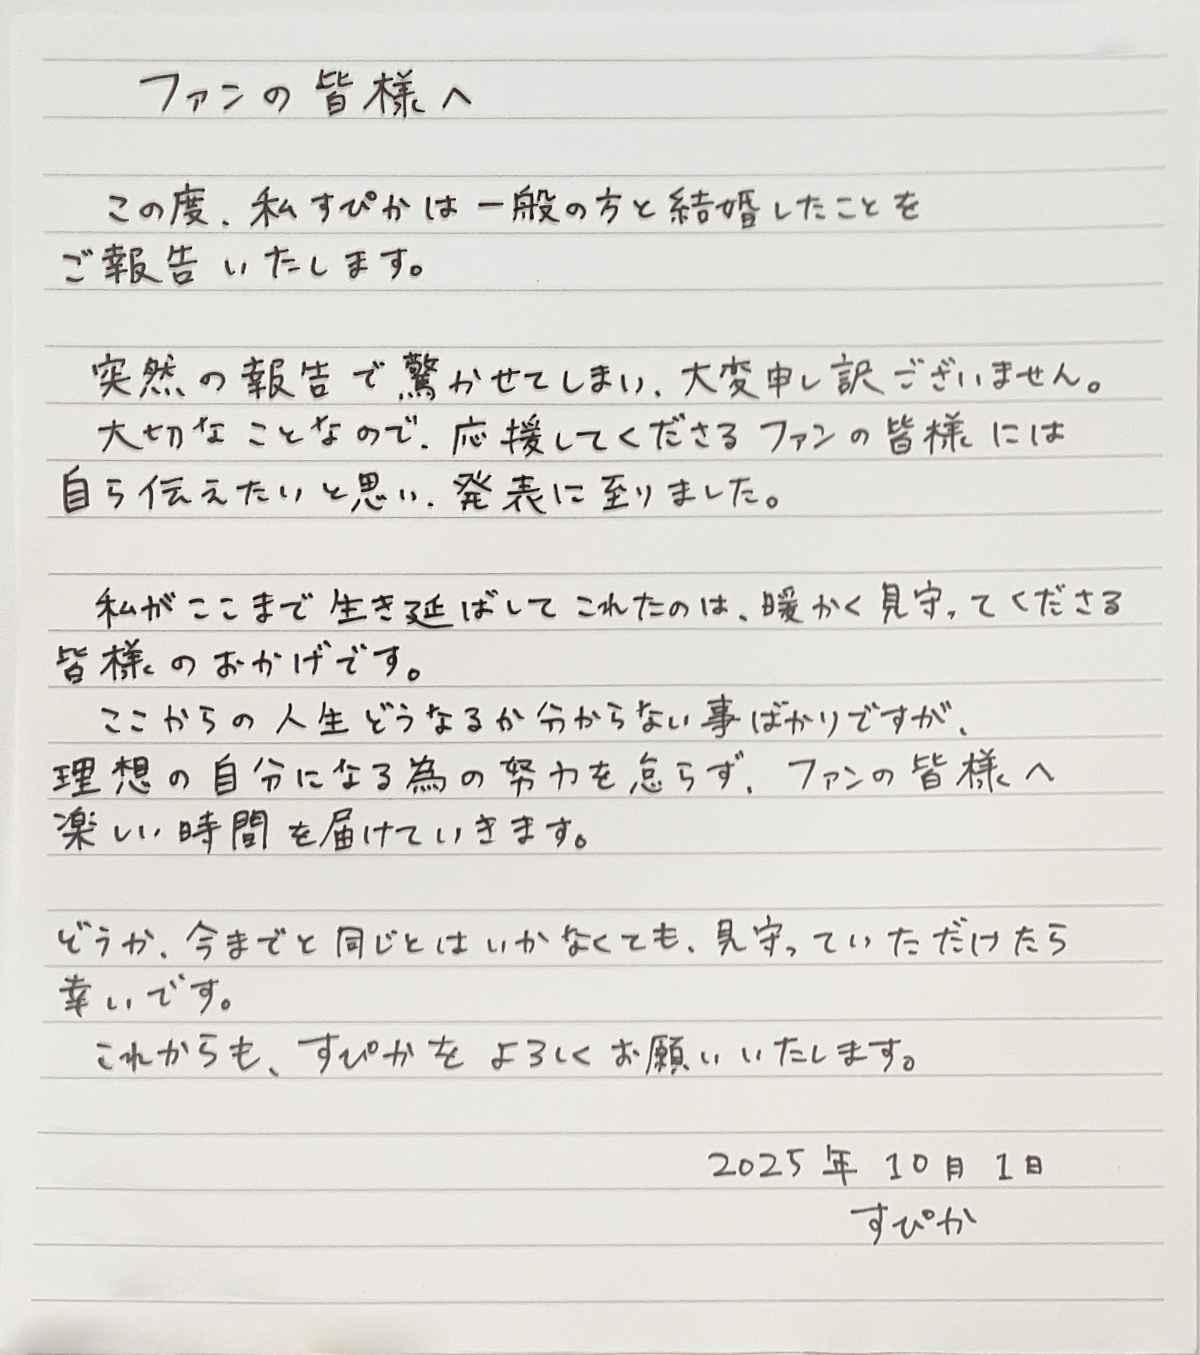 ファンの皆様へ
この度、私すぴかは一般の方と結婚したことを
ご報告いたします。
突然の報告で驚かせてしまい、大変申し訳ございません。
大切なことなので、応援してくださるファンの皆様には
自ら伝えたいと思い、発表に至りました。
私がここまで生き延ばしてこれたのは、暖かく見守ってくださる
皆様のおかげです。
ここからの人生どうなるか分からない事ばかりですが、
理想の自分になる為の努力を怠らず、ファンの皆様へ
楽しい時間を届けていきます。
どうか、今までと同じとはいかなくても、見守っていただけたら
幸いです。
これからも、すぴかをよろしくお願いいたします。
2025年10月1日
すぴか